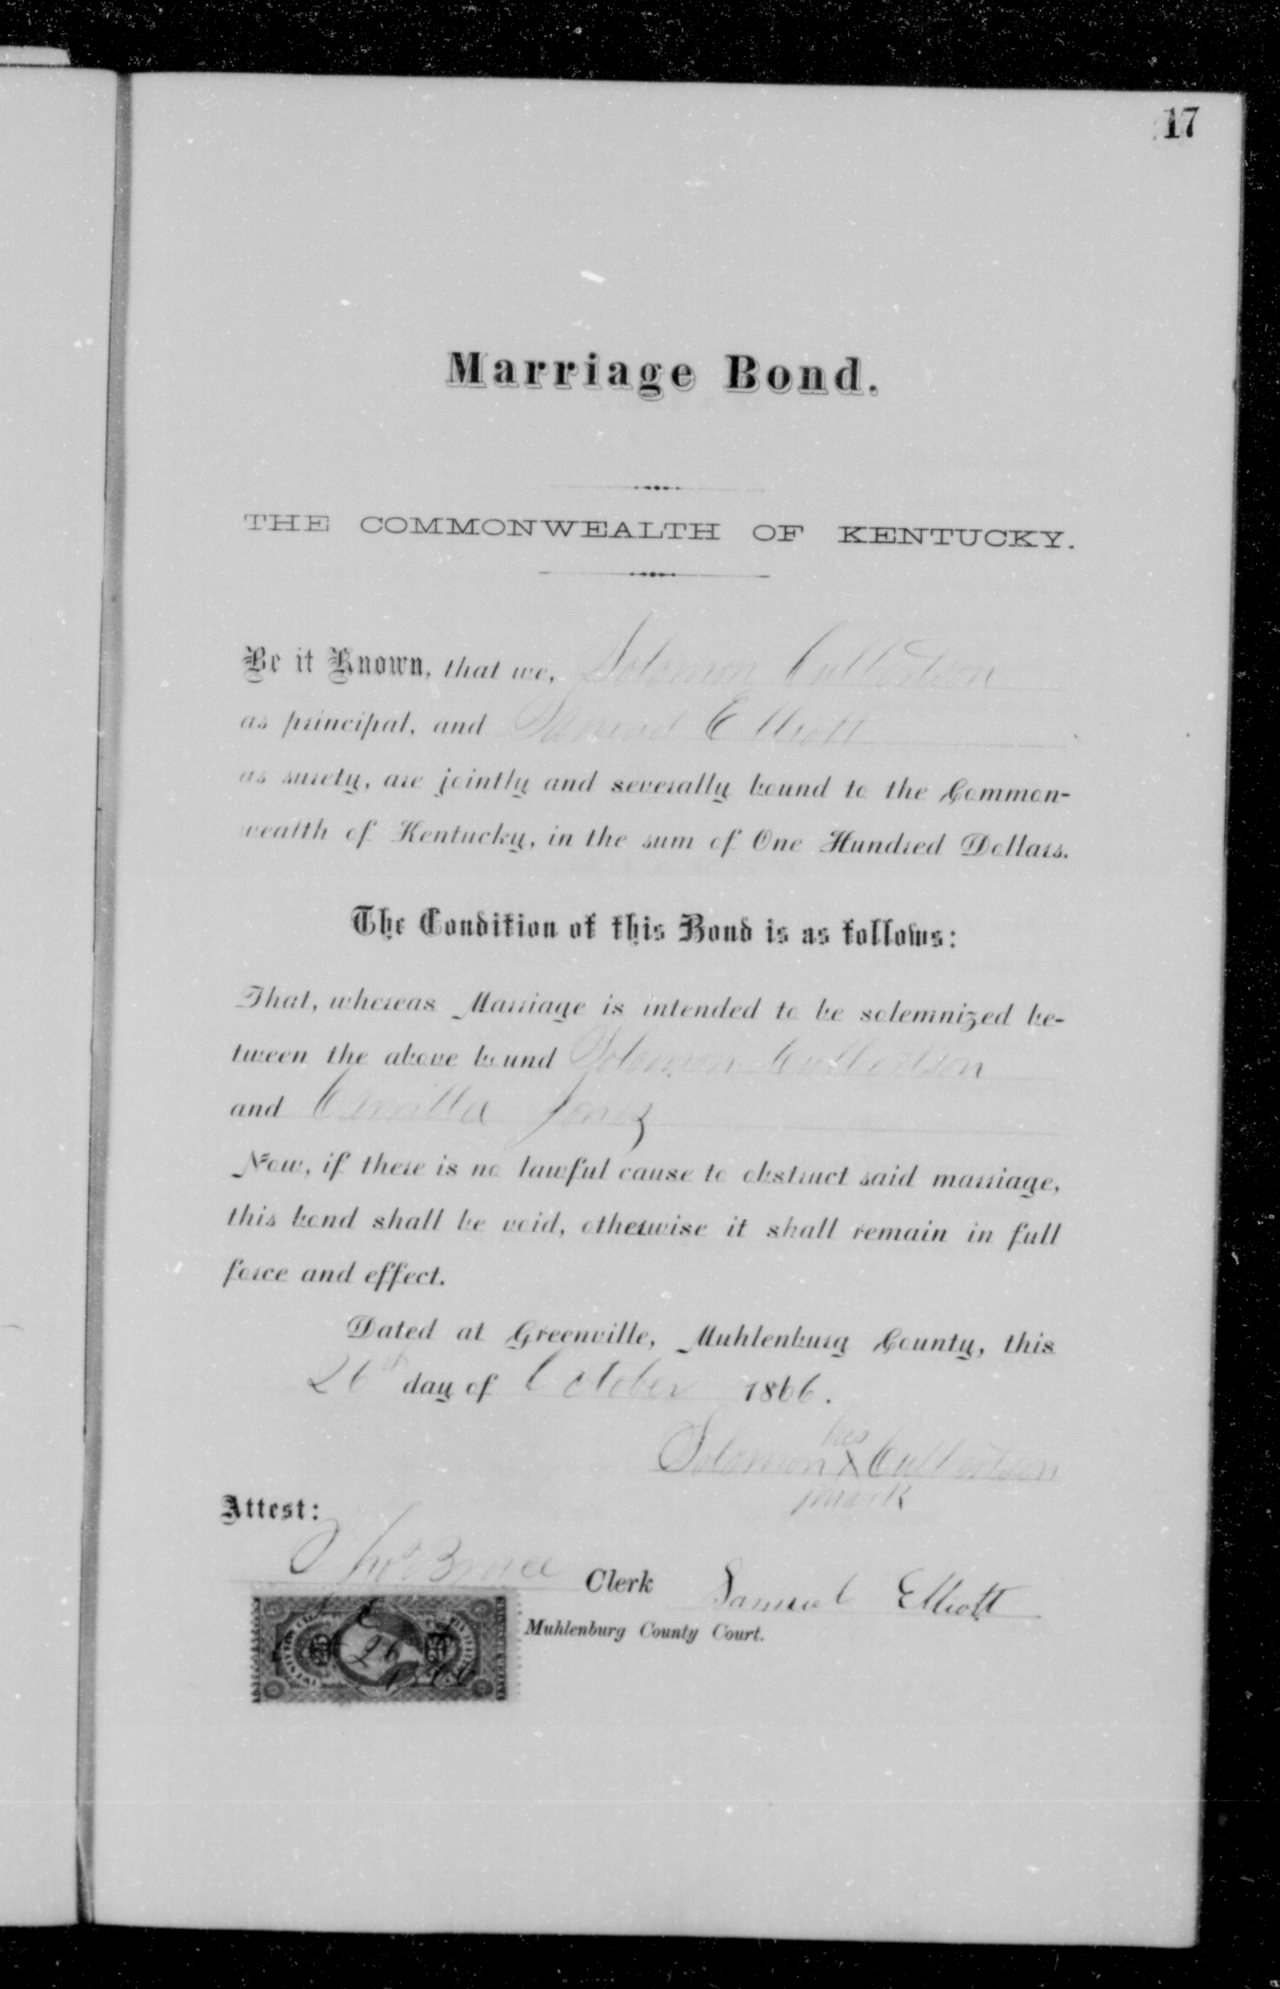 17
Marriage Bond.
THE COMMONWEALTH OF KENTUCKY.
Be it Known, that we, Solomon Culbertson
as principal, and Samuel Elliott
as surety, are jointly and severally bound to the Common-
wealth of Kentucky, in the sum of One Hundred Dollars.
The Condition of this Bond is as follows:
That, whereas Marriage is intended to be solemnized be-
tween the above bound Solomon Culbertson
and Jones
Now, if there is no lawful cause to obstruct said marriage,
this bond shall be void, otherwise it shall remain in full
force and effect.
Dated at Greenville, Muhlenburg County, this
26th day of October 1866.
his
Solomon X Culbertson
mark
Attest:
Thos Bruce Clerk Samuel Elliott
Muhlenburg County Court.
26